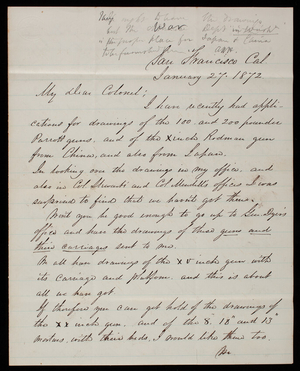 San Francisco Cal
January 27. 1872.
My dear Colonel;
I have recently had appli-
cations for drawings of the 100 and 200 pounder
Parrott guns, and of the X inch Rodman gun
from China, and also from Japan.
In looking over the drawings in my office, and
also in Col Stewarts and Col Mendells offices I was
surprised to find that we havent got these.
Will you be good enough to go up to Gen. Dyers
office and have the drawings of these guns and
their carriages sent to me.
We all have drawings of the XV inch gun with
its carriage and platform. and this is about
all we have got.
If therefore you can get hold of the drawings of
the XX inch gun, and of the 8" 10" and 13"
mortars, with their beds, I would like them too.